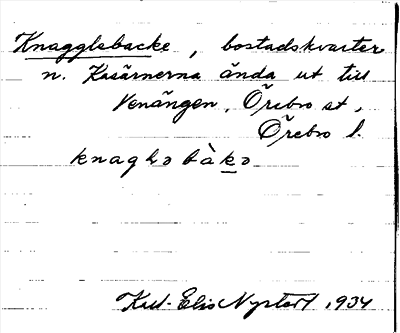 Knagglebacke, bostadskvarter
n. Kasärnerna ända ut till
Venängen, Örebro st,
Örebro l.
knaghə bàkə
Elis Nystedt 1934